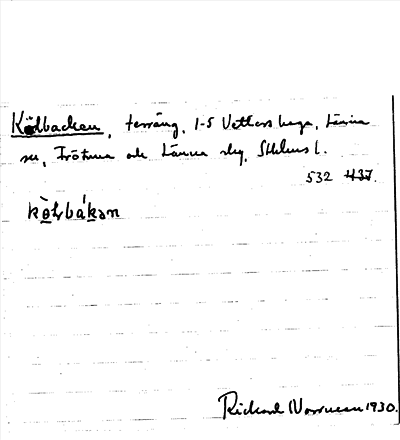 Kölbacken, terräng, 1-5 Vettershaga, Länna
sn, Frötuna och Länna slg, Sthlms l.
532 437.
Richard Norrman 1930.